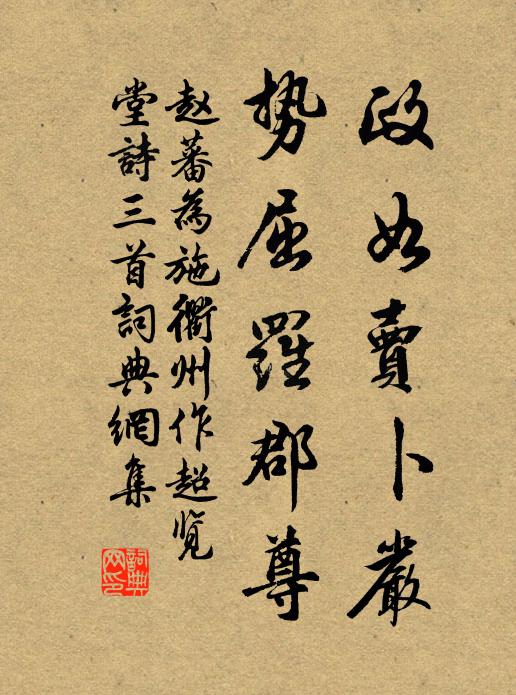 政如賣卜嚴
勢屈羅郡尊
赵蕃為施衢州作超览
堂詩三首詞典網集
詞典网印